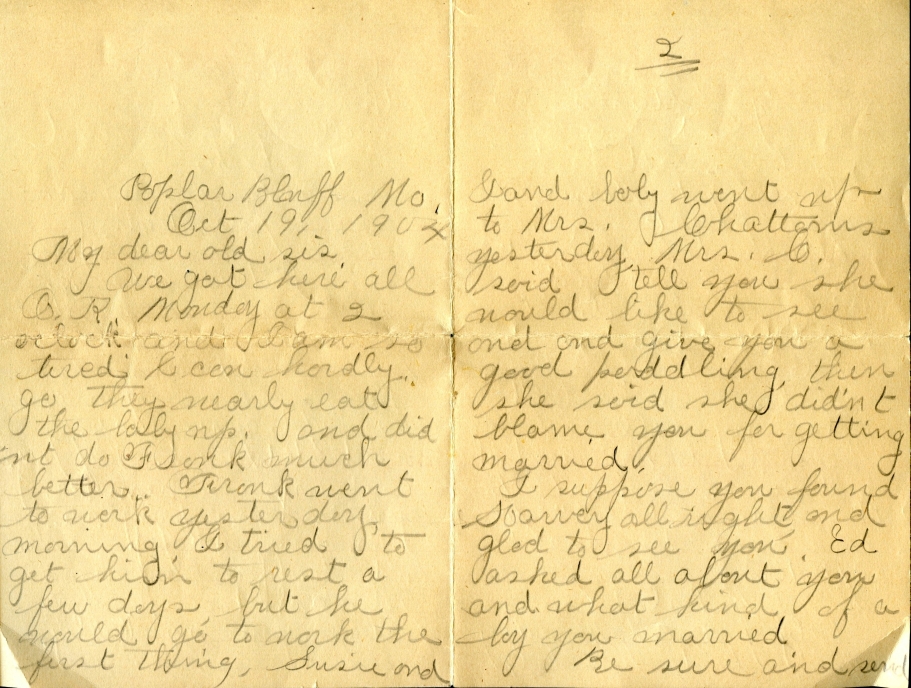 Poplar Bluff Mo.
Oct 19, 1904
My dear old sis
We got here all
O. R. Monday at 2
oclock and I am so
tired I can hardly
go they nearly eat
the baby up. and did
nt do Fronk much
better. Fronk went
to work yesterday
morning I tried to
get him to rest a
few days but he
would go to work the
first thing. Susie and
2
I and boby went up
to Mrs. Chattams
yesterday. Mrs. C.
said tell you she
would like to see
and give you a
good paddling then
she said she didn't
blame you for getting
married.
I suppose you found
Harvey all right and
glad to see you. Ed
asked all about you
and what kind of a
boy you married
Be sure and send